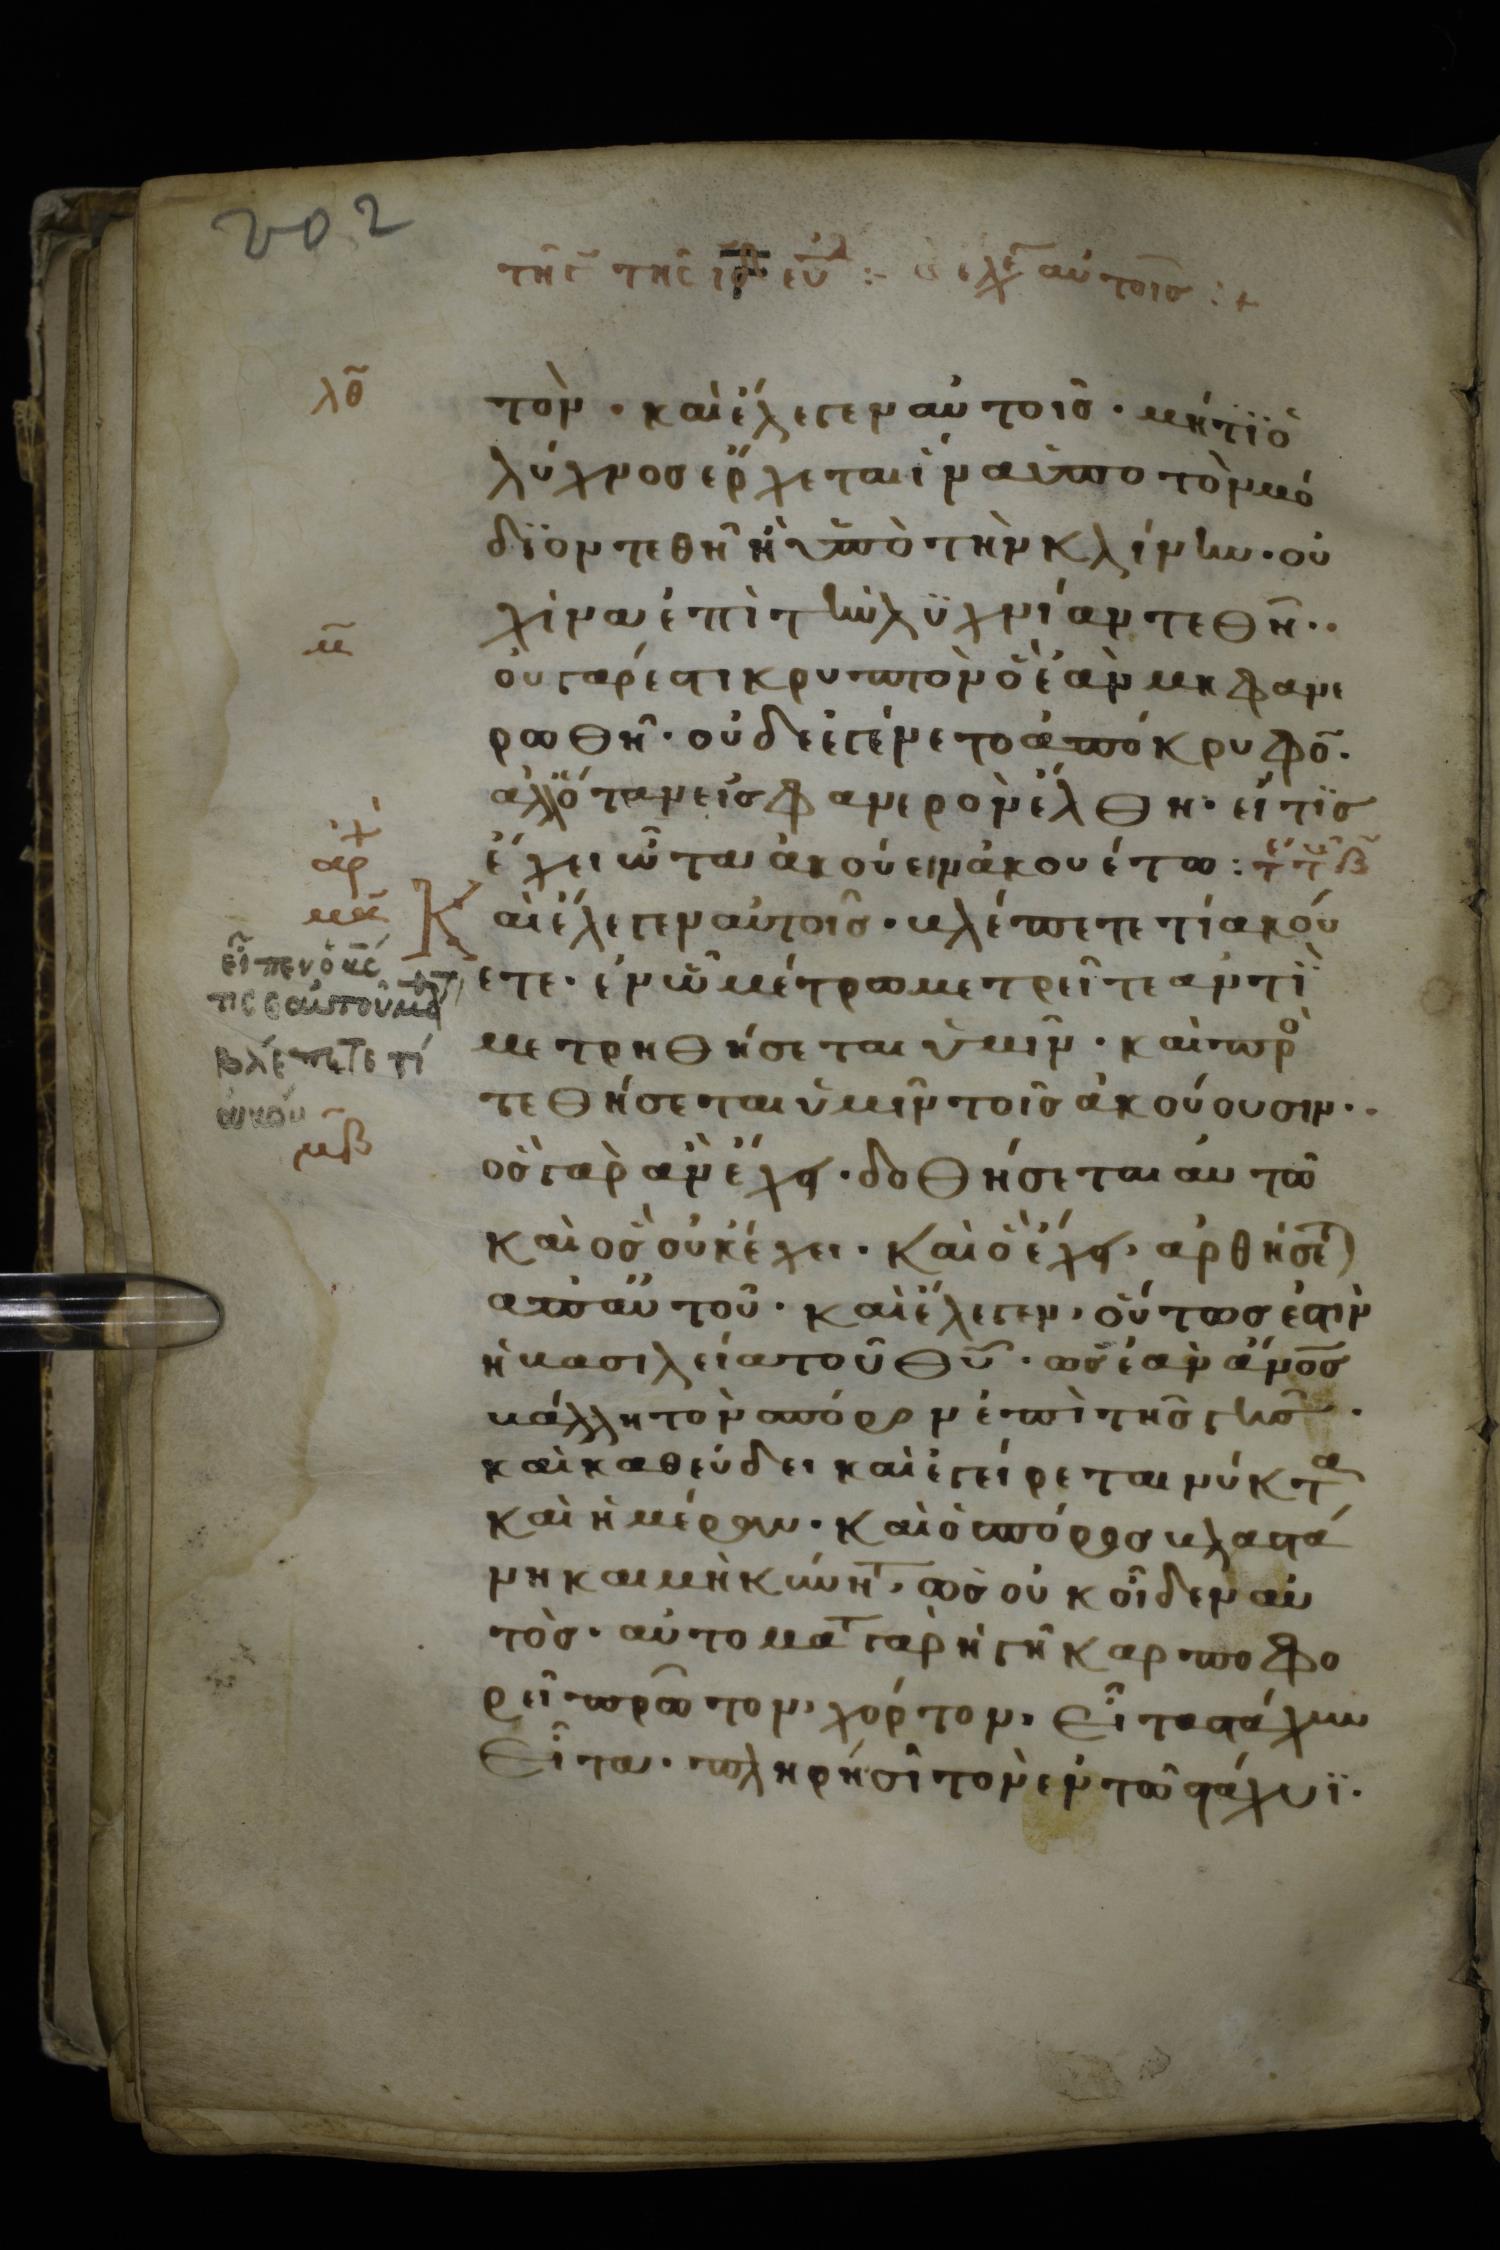 202
τῆς τῆς
αὐτοῖς :+
λθ
τὸν · καὶ ἔλεγεν αὐτοῖς · μήτϊ ὁ
λύχνος ἔρχεται ἵνα ὑπο τὸν μό
δϊον τεθῆ ἢ ὑπὸ τὴν κλίνην · οὐ
χ ἵνα ἐπὶ τὴν λϋχνίαν τεθῆ ··
μ
οὐ γάρ ἐστι κρυπτὸν ὃ ἐὰν μη φανε
ρωθῆ · οὐδὲ ἐγένετο ἀπόκρυφο̄ ·
ἀλλ' ὅταν εἰς φανερὸν ἔλθη · εἴ τϊς
ἔχει ὦτα ἀκούειν ἀκουέτω :
ἀρχ
μα
Καὶ ἔλεγεν αὐτοῖς · βλέπετε τί ἀκού
ετε · ἐν ὧ μέτρω μετρεῖτε ἀντϊ
μετρηθήσεται ὑμῖν · καὶ προ
τεθήσεται ὑμῖν τοῖς ἀκούουσιν ··
εἶπεν ὁ κς
βλέπετε τί
ἀκού
μβ
ὃς γὰρ ἂν ἔχη · δοθήσεται αὐτῶ
καὶ ὃς οὐκ ἔχει · καὶ ὃ ἔχη, ἀρθήσε
ἀπ' αὐτοῦ · καὶ ἔλεγεν, οὕτως ἐστὶν
ἡ βασιλεία τοῦ θυ · ὡς ἐὰν ἄνος
βάλλη τὸν σπόρον ἐπὶ τῆς γῆς ·
καὶ καθεύδει καὶ ἐγείρεται νύκτα
καὶ ἡμέραν · καὶ ὁ σπόρος βλαστά
νη και μηκύνητ, ὡς οὐκ οἶδεν αὐ
τός · αὐτοματ γὰρ ἡ γῆ καρποφο
ρεῖ πρῶτον, χόρτον, εἶτα στάχυν
εἶτα · πλήρη σῖτον ἐν τῶ στάχυϊ ·